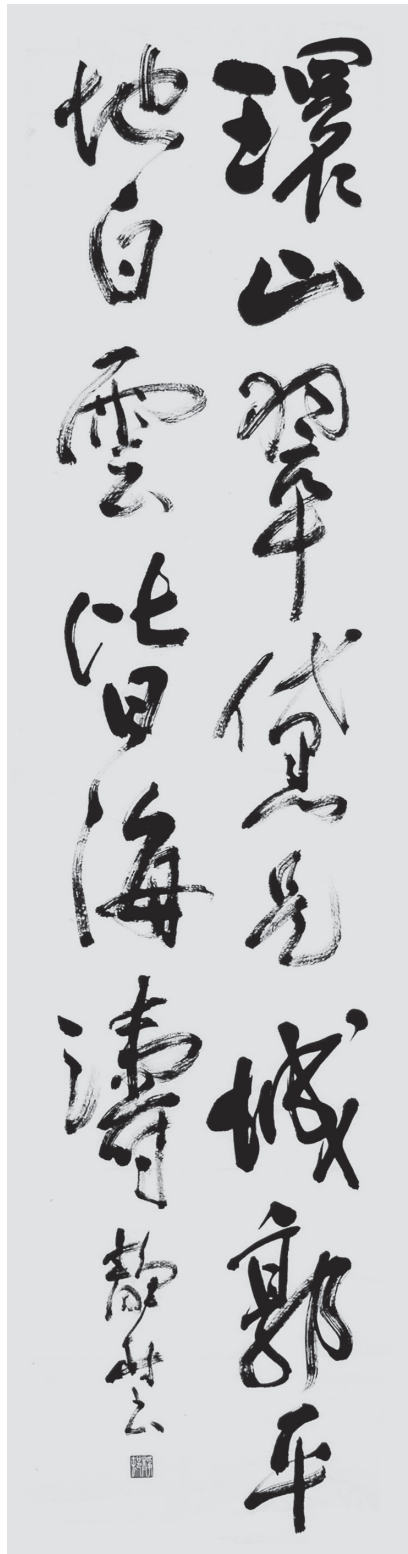 環山翠黛是城郭平
地白雲皆海濤